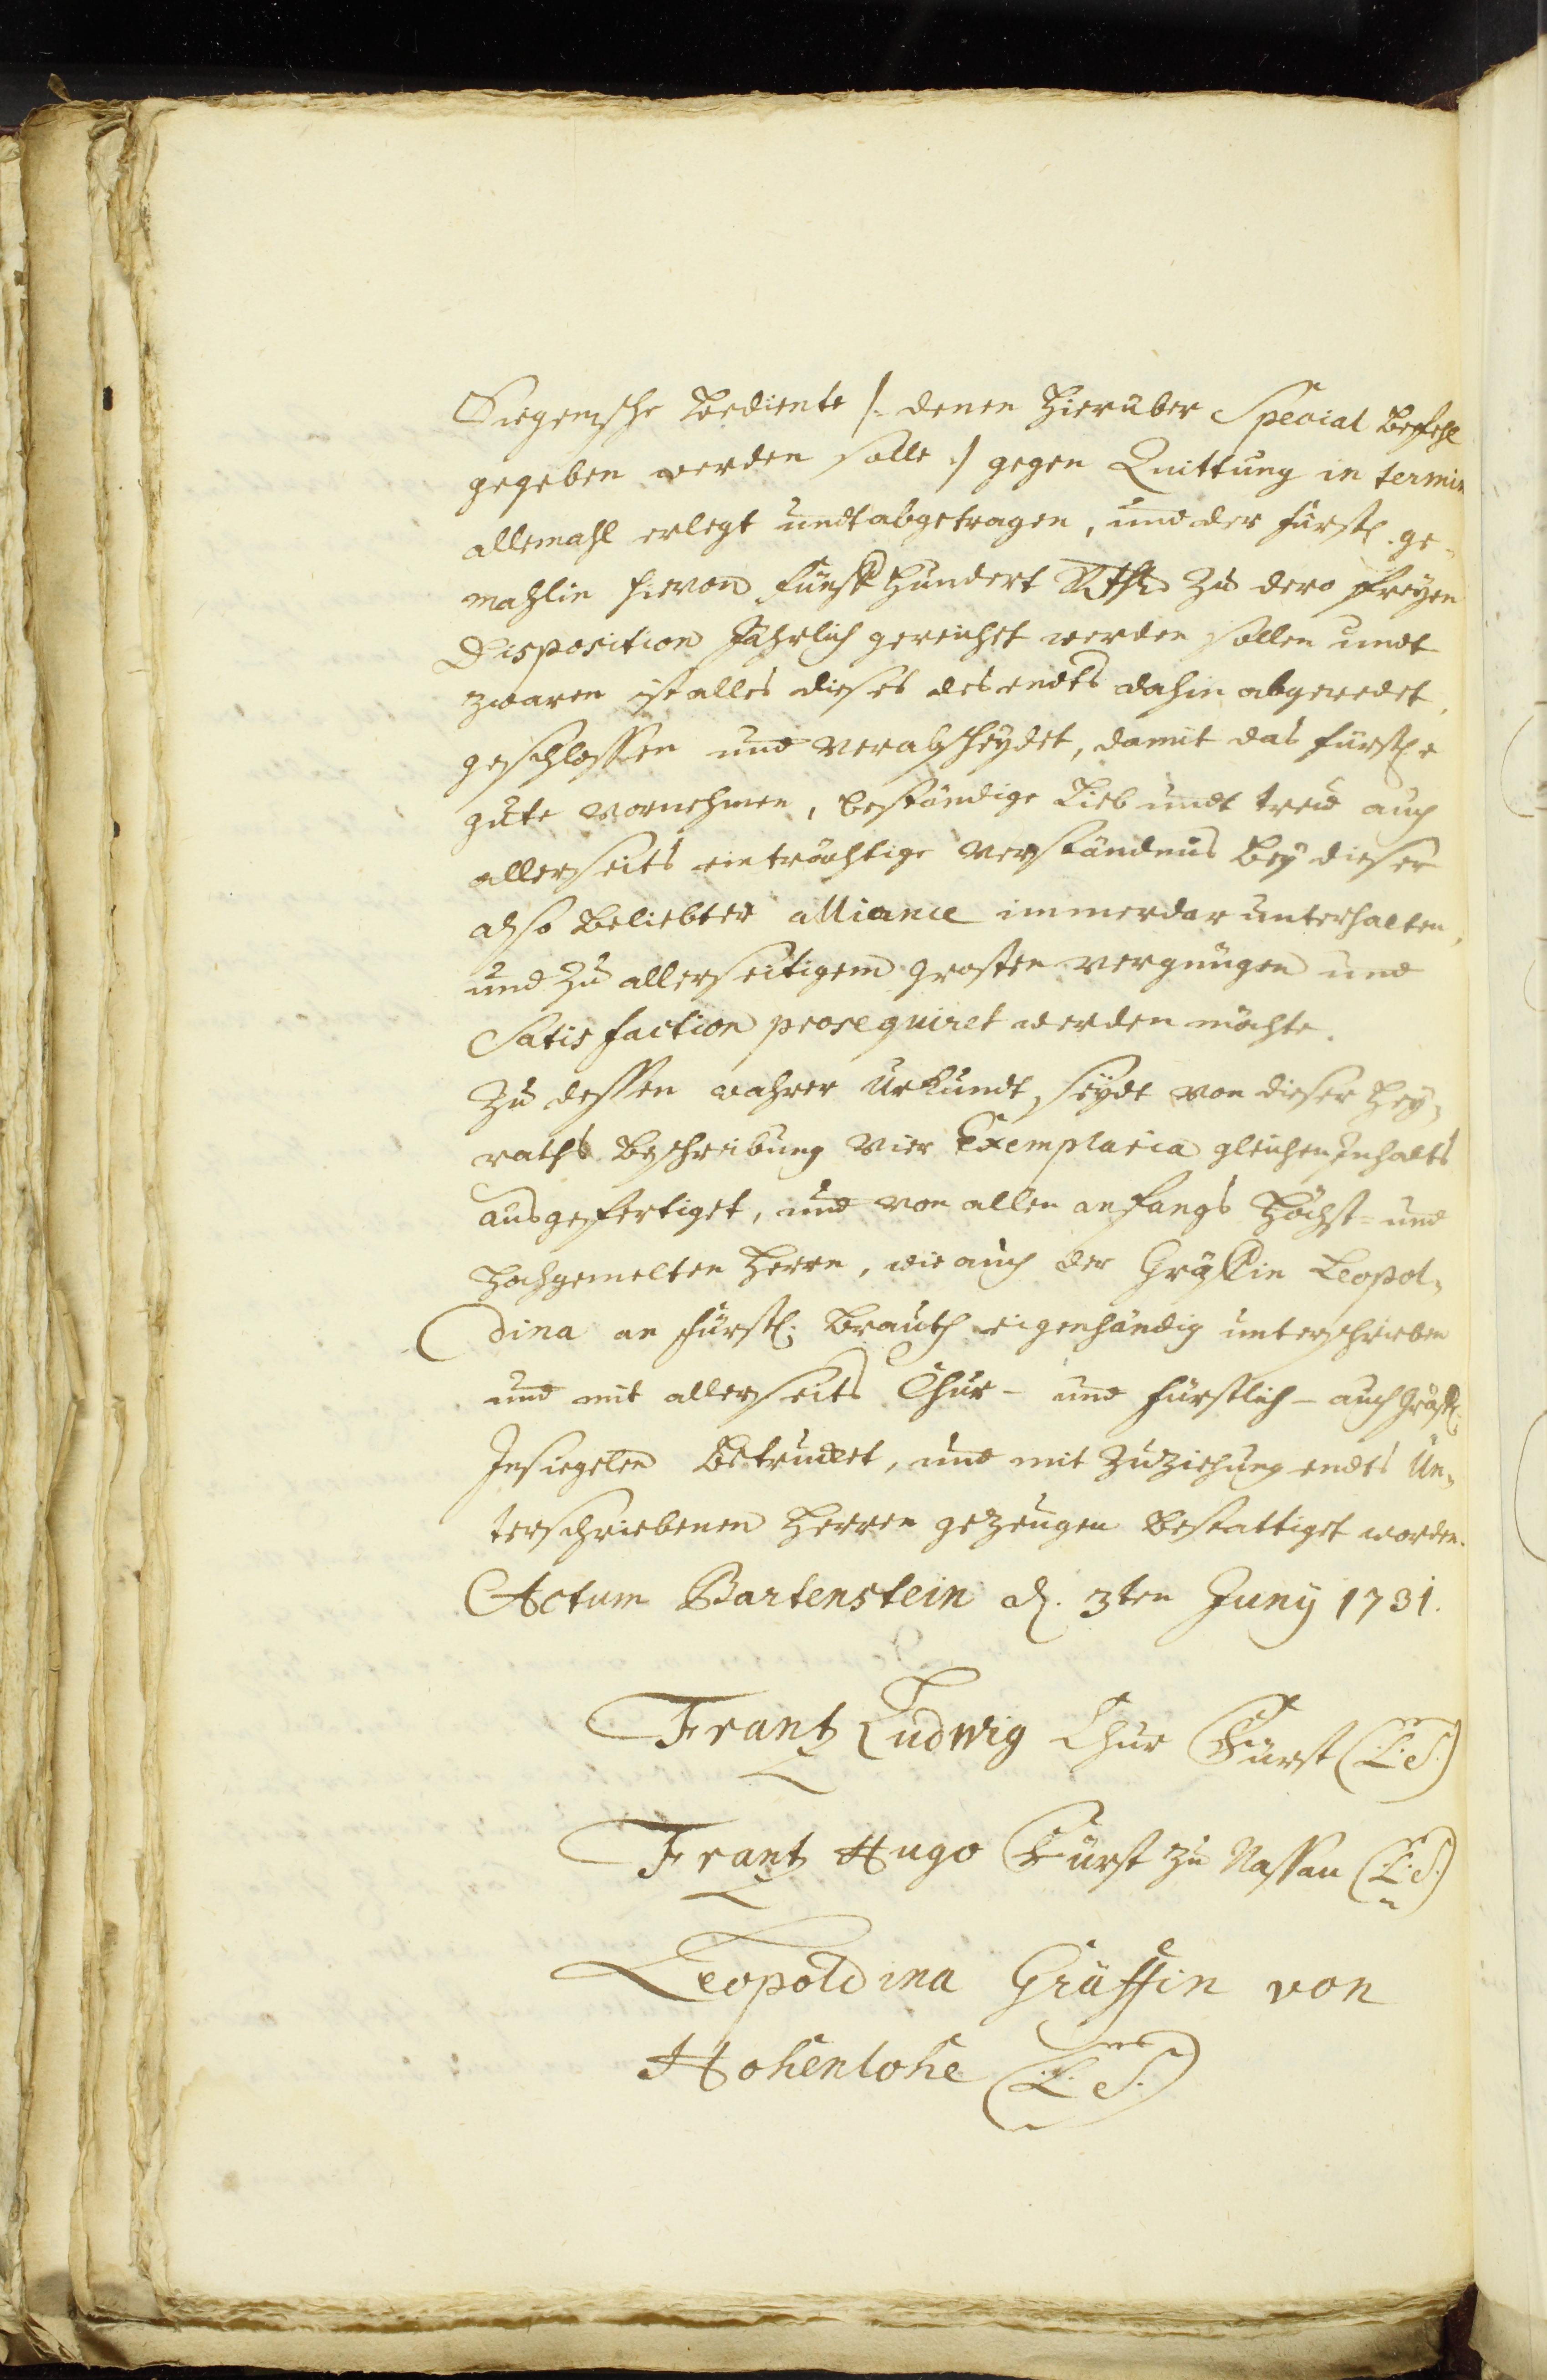 Siegensche Bediente /: denen hierüber Special Befehl
gegeben werden solle :/ gegen Quittung in termin
allemahl erlegt undt abgetragen, und der fürstl. ge-
mahlin hievon fünff hundert Rthl. zu dero freyen
Disposition Jährlich gereichet werden sollen undt
zwaren ist alles dieses des endts dahin abgeredet,
geschlossen und verabscheydet, damit das fürstl.e
gute vornehmen, beständige Lieb undt treu auch
allerseits einträchtige verständnus bey dieser
also beliebter alliance immerdar unterhalten,
und zu allerseitigem grosten vergnügen und
Satisfaction prosequiret werden möchte.
Zu dessen wahrer Urkundt, seydt von dieser Hey-
raths Beschreibung vier Exemplaria gleichen Inhalts
ausgefertiget, und von allen anfangs Höchst- und
Hochgemelten Herrn, wie auch der Gräffin Leopol-
dina an fürstl. Brauth eigenhändig unterschrieben
und mit allerseits Chur- und fürstlich- auch gräffl.
Insiegelen betrucket, und mit Zuziehung endts Un-
terschriebenen Herren gezeugen bestattiget worden.
Actum Bartenstein d. 3ten Juny 1731.
Frantz Ludwig Chur Fürst (L.S.)
Frantz Hugo Fürst zu Nassau (L.S.)
Leopoldina Gräffin von
Hohenlohe (L.S.)